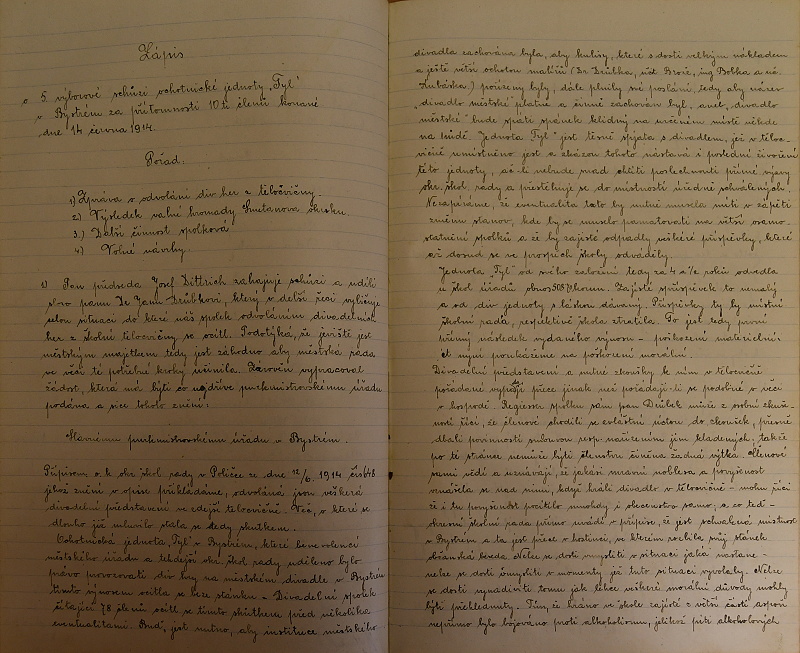 Zápis
o 5. výborové schůzi ochotnické jednoty „Tyl"
v Bystrém za přítomnosti 10ti členů konané
dne 14 června 1914.
Pořad:
1) Zpráva o odvolání div. her z tělocvičny.
2) Výsledek valné hromady Smetanova okrsku.
3.) Další činnost spolková
4) Volné návrhy.
1) Pan předseda Josef Dittrich zahajuje schůzi a udílí
slovo panu Dr Janu Drúbkovi, který v delší řeči vyličuje
celou situaci do které náš spolek odvoláním divadelních
her z školní tělocvičny se ocitl. Podotýká, že jeviště jest
městským majetkem tedy jest záhodno aby městská rada
ve věci té potřebné kroky učinila. Zároveň vypracoval
žádost, která má býti co nejdříve purkmistrovskému úřadu
podána a sice tohoto znění:
Slavnému purkmistrovskému úřadu v Bystrém.
Přípisem c. k. okr. škol. rady v Poličce ze dne 12/6. 1914 čís 648
jehož znění v opise přikládáme, odvolána jsou veškerá
divadelní představení ve zdejší tělocvičně. Věc, o které se
dlouho již mluvilo stala se tedy skutkem.
Ochotnická jednota „Tyl" v Bystrém, které benevolencí
městského úřadu a tehdejší okr. škol. rady uděleno bylo
právo provozovati div. hry na městském divadle v Bystrém
tímto výnosem ocitla se beze stánku. - Divadelní spolek
čítající 78 členů ocitl se tímto skutkem před několika
eventualitami. Buď jest nutno, aby instituce městského
divadla zachována byla, aby kulisy, které s dosti velkým nákladem
a ještě větší ochotou malířů (Dr. Drúbka, úst. Brože, ing. Bobka a uč.
Kubáska) pořízeny byly, dále plnily své poslání, tedy aby název
„divadlo městské" platně a činně zachován byl, aneb „divadlo
městské" bude späte spánek klidný na určeném místě někde
na půdě. Jednota „Tyl" jest těsně spjata s divadlem, jež v těloc-
vičně umístněno jest a zkázou tohoto nastává i poslední živoření
této jednoty, ač-li nebude snad chtíti poslechnouti přímé výzvy
okr. škol. rady a přestěhuje se do místností úředně schválených.
Nezapíráme, že eventualita tato by nutně musela míti v zápětí
změnu stanov, kde by se muselo pamatovati na větší osamo-
statnění spolku a že by zajisté odpadly veškeré příspěvky, které
až dosud se ve prospěch školy odváděly.
Jednota „Tyl" od svého založení tedy za 4 a ½ roků odvedla
u škol. úřadů obnos 508 70 korun. Zajisté příspěvek to nemalý
a od div. jednoty s láskou dávaný. Příspěvky ty by místní
školní rada, respektivě škola ztratila. To jest tedy první
přímý následek vydaného výnosu - poškození materielní.
Nyní poukážeme na poškození morální.
Divadelní představení a nutné zkoušky k nim v tělocvičně
pořádané vyhoví přece jinak než pořádají-li se podobné v věci
v hospodě. Regisseur spolku sám pan Drúbek může z osobní zkuše-
nosti říci, že členové chodili se zvláštní úctou do zkoušek, přesně
dbali povinností smlouvou resp. nařízením jim kladených, takže
po té stránce nemůže býti členstvu činěna žádná výtka. Členové
sami vědí a uznávají, že jakási mravní noblesa a povýšenost
vznášela se nad nimi, když hráli divadlo v tělocvičně - mohu říci
že i tu povýšenost pocítilo mnohdy i obecenstvo samo, a co teď -
okresní školní rada přímo uvádí v přípise, že jest schválená místnost
v Bystrém a ta jest přece v hostinci, ve kterém zvolila svůj stánek
občanská beseda. Nelze se dosti vmysliti v situaci jaká nastane -
nelze se dosti vmysliti v momenty jež tuto situaci vyvolaly. Nelze
se dosti vynadiviti tomu jak lehce veškeré morální důvody mohly
býti přehlednuty. Tím, že hráno ve škole zajisté z větší části aspoň
nepřímo bylo bojováno proti alkoholismu, jelikož pití alkoholových